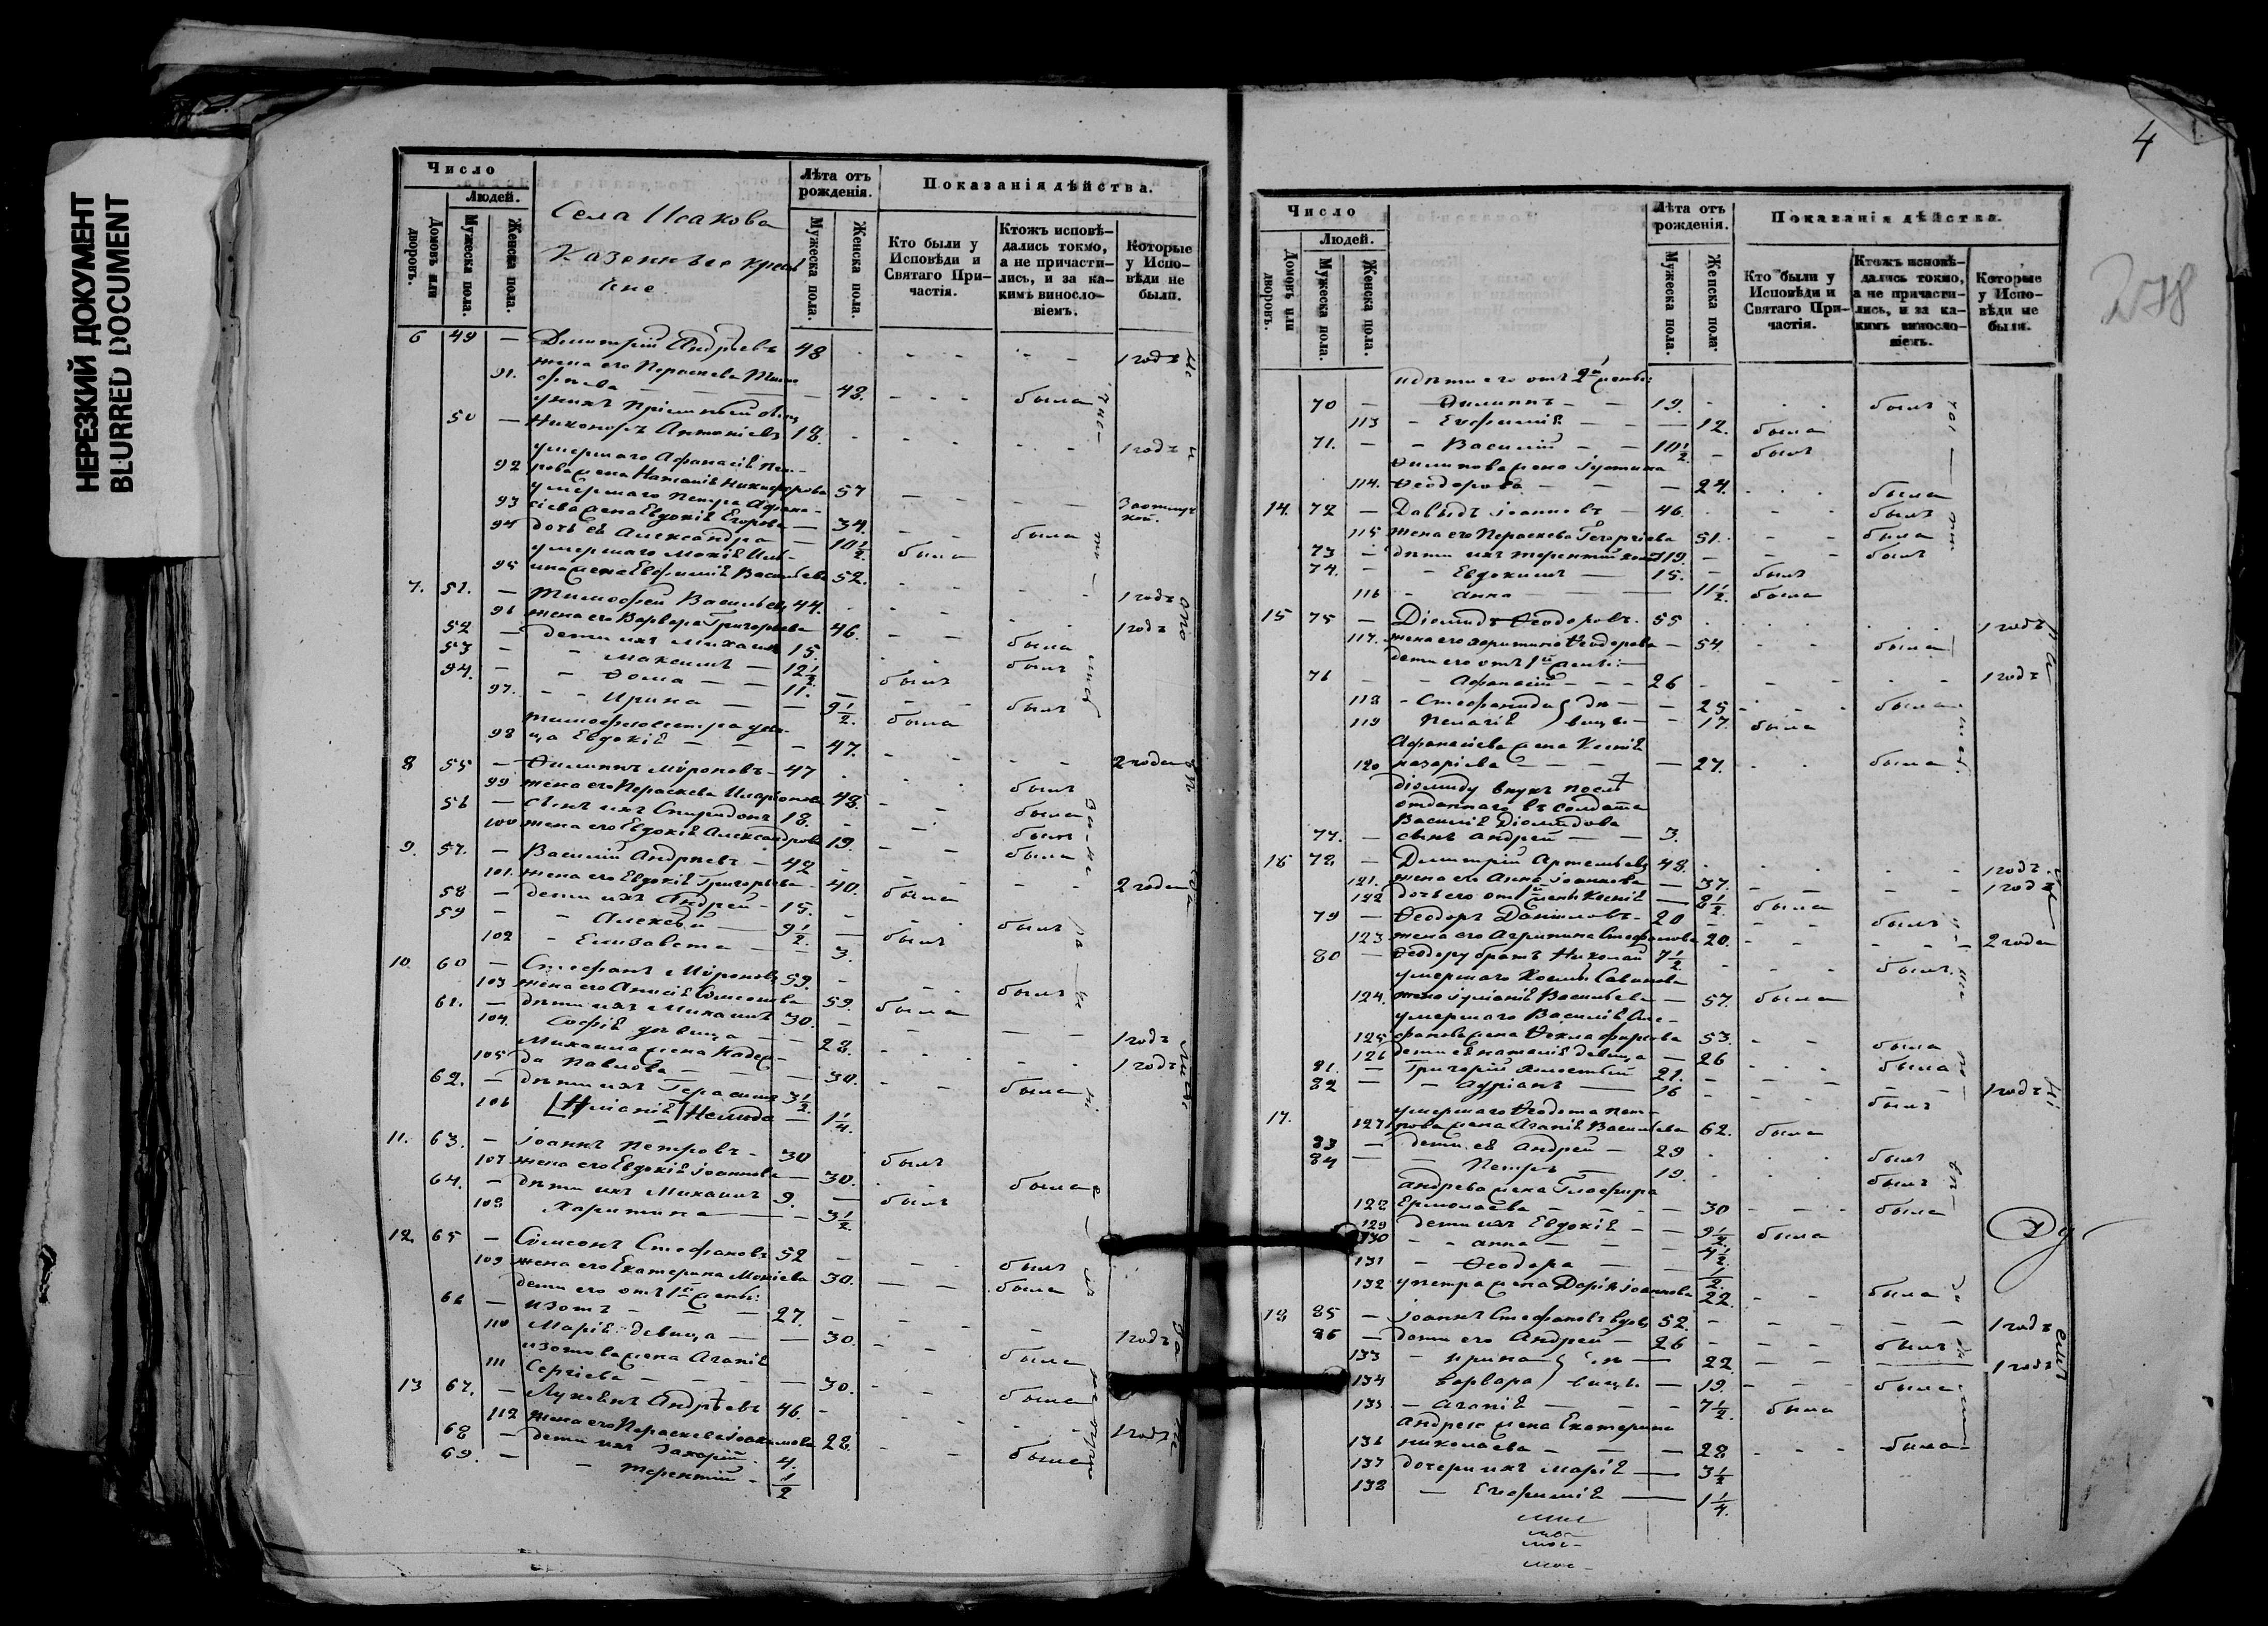 НЕРЕЗКИЙ ДОКУМЕНТ
BLURRED DOCUMENT
Число
Людей.
Домовъ или дворовъ.
Мужеска пола.
Женска пола.
Села Исакова
Казенные кресть
яне
Лѣта отъ рожденія.
Мужеска пола.
Женска пола.
Показанія дѣйства.
Кто были у Исповѣди и Святаго При-частія.
Ктожъ исповѣ-дались токмо, а не причасти-лись, и за ка-кимъ винословіемъ.
Которые у Испо-вѣди не были.
6 49 — Димитрій Андріевъ 48 1 годъ
91. жена его Параскева Тимо
фѣева — 48. была
у нихъ пріемышъ
50 — Никоноръ Антоніевъ 18. 1 годъ
умершаго Афанасія Пет-
92 рова жена Наталія Никифорова 57
умершаго Петра Афана-
93 сіева жена Евдокія Егорова — 34.
94 дочь ея Александра — 10 1/2 была
умершаго Мокія
95 жена Евфимія Васильева 52.
7. 51. — Тимофей Васильевъ 44. 1 годъ
96 жена его Варвара Григорьева 46. 1 годъ
52 — дети ихъ Михаилъ 15. была
53 — Максимъ — 12 1/2 былъ
54. — Фома — 11. былъ
97. — Ирина — 9 1/2. была
Тимофею сестра деви-
98 ца Евдокія — 47. 2 года
8 55 — Филиппъ Мироновъ — 47 былъ
99 жена его Параскева Иларіонова 48. была
56 — сынъ ихъ Спиридонъ 18. былъ
100 жена его Евдокія Александрова 19. была
9. 57. — Василій Андріевъ — 42 2 года
101. жена его Евдокія Григорьева — 40. была
58 — дети ихъ Андрей — 15. былъ
59 — Алексѣй — 9 1/2. былъ
102 — Елизавета — 3.
10. 60 — Стефанъ Мироновъ 59. былъ
103 жена его Анисія Симеонова 59. была
61. — дѣти ихъ Михаилъ 30. 1 годъ
104. Софія девица — 28. 1 годъ
Михаила жена Надеж-
105 да Павлова — 30. была
62. — дѣти ихъ Герасимъ 3 1/2
106 — 1 1/4.
11. 63. — Іоаннъ Петровъ — 30 былъ
107 жена его Евдокія Іоаннова — 30. была
64. — дѣти ихъ Михаилъ 9. былъ
108 Харитина — 3 1/2
12. 65 — Симеонъ Стефановъ 52 былъ
109 жена его Екатерина Мокіева 30. была
дети его отъ 1й жены:
66 — Изотъ — 27. 1 годъ
110 Марія девица — 30. была
Изотова жена Агапія
111 Сергіева — 30. была
13 67. — Андріевъ 46. 1 годъ
112 жена его Параскева Іоакимова 28. была
68 — дети ихъ Захарій — 4.
69. — Терентій — 1/2
4
278
Число
Людей.
Домовъ или дворовъ.
Мужеска пола.
Женска пола.
Лѣта отъ рожденія.
Мужеска пола.
Женска пола.
Показанія дѣйства.
Кто были у Исповѣди и Святаго При-частія.
Ктожъ исповѣ-дались токмо, а не причасти-лись, и за ка-кимъ винословіемъ.
Которые у Испо-вѣди не были.
дѣти его отъ 1й жены:
70 — Филиппъ — 19. былъ
113 — Евфимія — 12. была
71. — Василій — 10 1/2 — былъ
Филипова жена Іустина
114. Феодорова — 24. была
14. 72 — Давыдъ Іоанновъ — 46. былъ
115 жена его Параскева Георгіева 51. была
73 — дѣти ихъ Терентій 19. былъ
74. — Евдокимъ — 15. — былъ
116 — Анна — 11 1/2. была
15 75 — Діомидъ Феодоровъ. 55 1 годъ
117. жена его Харитина Феодорова — 54. была
дети его отъ 1й жены:
76 — Афанасій — 26 1 годъ
118 — Стефанида } дѣ — 25 была
119 Пелагія } вицы — 17. была
Афанасіева жена Ксенія
120 Назаріева — 27. была
Діомиду внукъ послѣ
отданнаго въ солдаты
Василія Діомидова
77. — сынъ Андрей — 3.
16 78 — Димитрій Артемьевъ 48. 1 годъ.
121. жена его Анна Іоаннова — 37. 1 годъ
122 дочь его отъ 1й жены Ксенія — 8 1/2. была
79 — Феодоръ Даниловъ — 20 былъ
123 жена его Агрипина Стефанова 20. 2 года
80 — Феодору братъ Николай 7 1/2 былъ
умершаго Космы Савинова
124. жена Іуліанія Васильева — 57. была
умершаго Василія Сте-
125 фанова жена Фекла Фирсова 53. была
126 дети ея Наталія девица — 26 была
81. — Григорій холостый 21. 1 годъ
82 — Адріанъ — 16 былъ
17. умершаго Феодота Пет-
127 рова жена Агапія Васильева 62. была
83 — дети ея Андрей — 29 былъ
84 — Петръ — 19. былъ
Андрева жена Глафира
128 Ермолаева — 30 была
129 дети ихъ Евдокія — 9 1/2 была
130 — Анна — 4 1/2.
131 — Феодора — 1/2.
132 у Петра жена Дарія Іоаннова 22. была
18 85 — Іоаннъ Стефановъ вдовъ 52. 1 годъ
86 — дети его Андрей — 26 былъ
133 — Ирина } дѣ — 22 1 годъ
134 Варвара } вицы. — 19. была
135 — Агапія — 7 1/2. была
Андрея жена Екатерина
136 Николаева — 28 была
137 дочери ихъ Марія — 3 1/2
138 — Евфимія — 1 1/4.